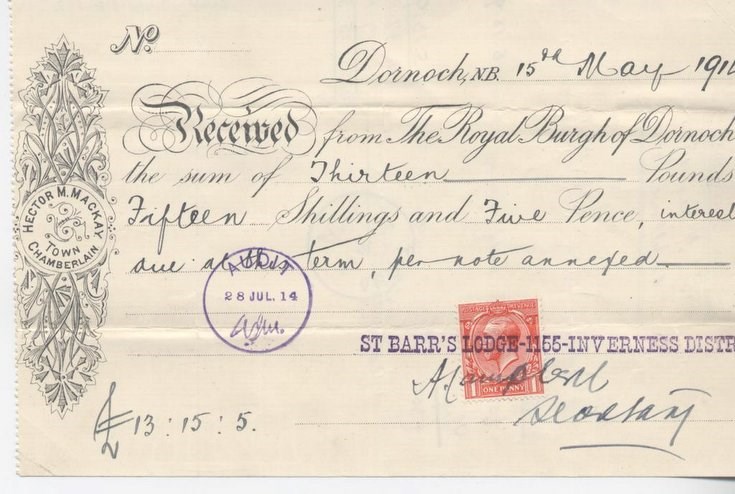 No.
Dornoch, N.B. 15th May 191
Received from The Royal Burgh of Dornoch
the sum of Thirteen Pounds
Fifteen Shillings and Five Pence, interest
due at this term, per note annexed.
HECTOR M. MACKAY
TOWN
CHAMBERLAIN
AUDIT
28 JUL. 14
ST BARR'S LODGE-1155-INVERNESS DISTR
A Campbell
ONE PENNY
Secretary
£13:15:5.